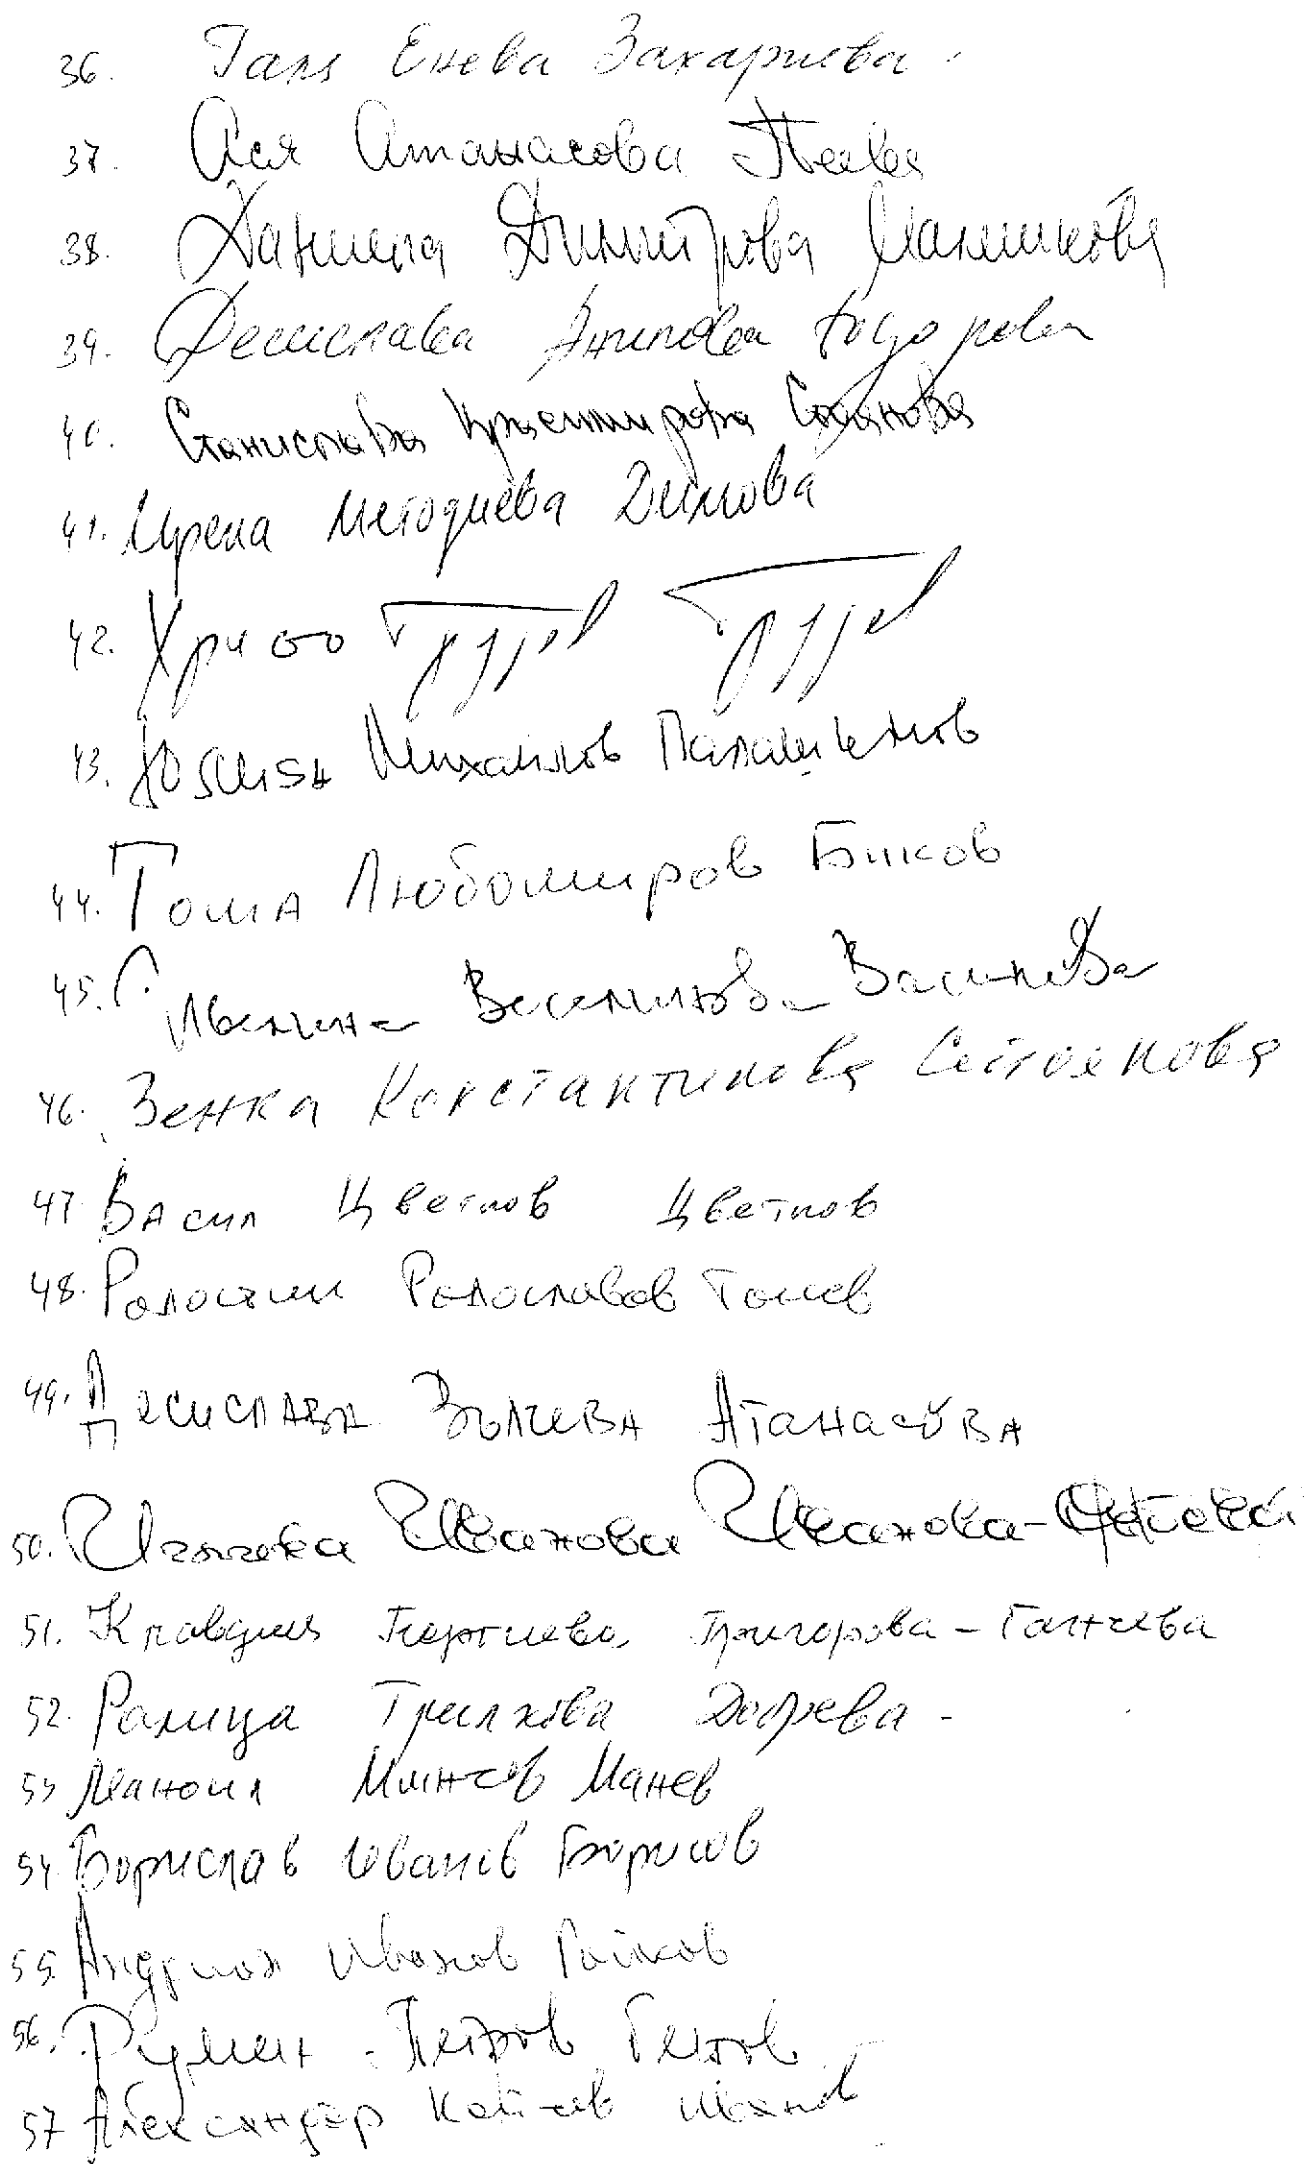 36. Галя Енева Захариева
37. Ася Атанасова Пеева
38. Даниела Димитрова
39. Десислава Тодорова
40. Станислава Красимирова Стоянова
41. Ирена Методиева Димова
42. Христо
43. Михайлов
44. Тоша Любомиров Биков
45. Ивелина Веселинова Василева
46. Зенка Константинова Стоянова
47. Васил Цветков Цветков
48. Радостин Радославов Тонев
49. Десислава Вълчева Атанасова
50. Иглика Иванова Иванова-
51. Клавдия Георгиева Григорова-Ганчева
52. Ралица Добрева
53 Маноил Минчев Манев
54. Борислав Иванов Борисов
55. Андриан Иванов Райков
56. Румен Петров Гечев
57 Александър Иванов